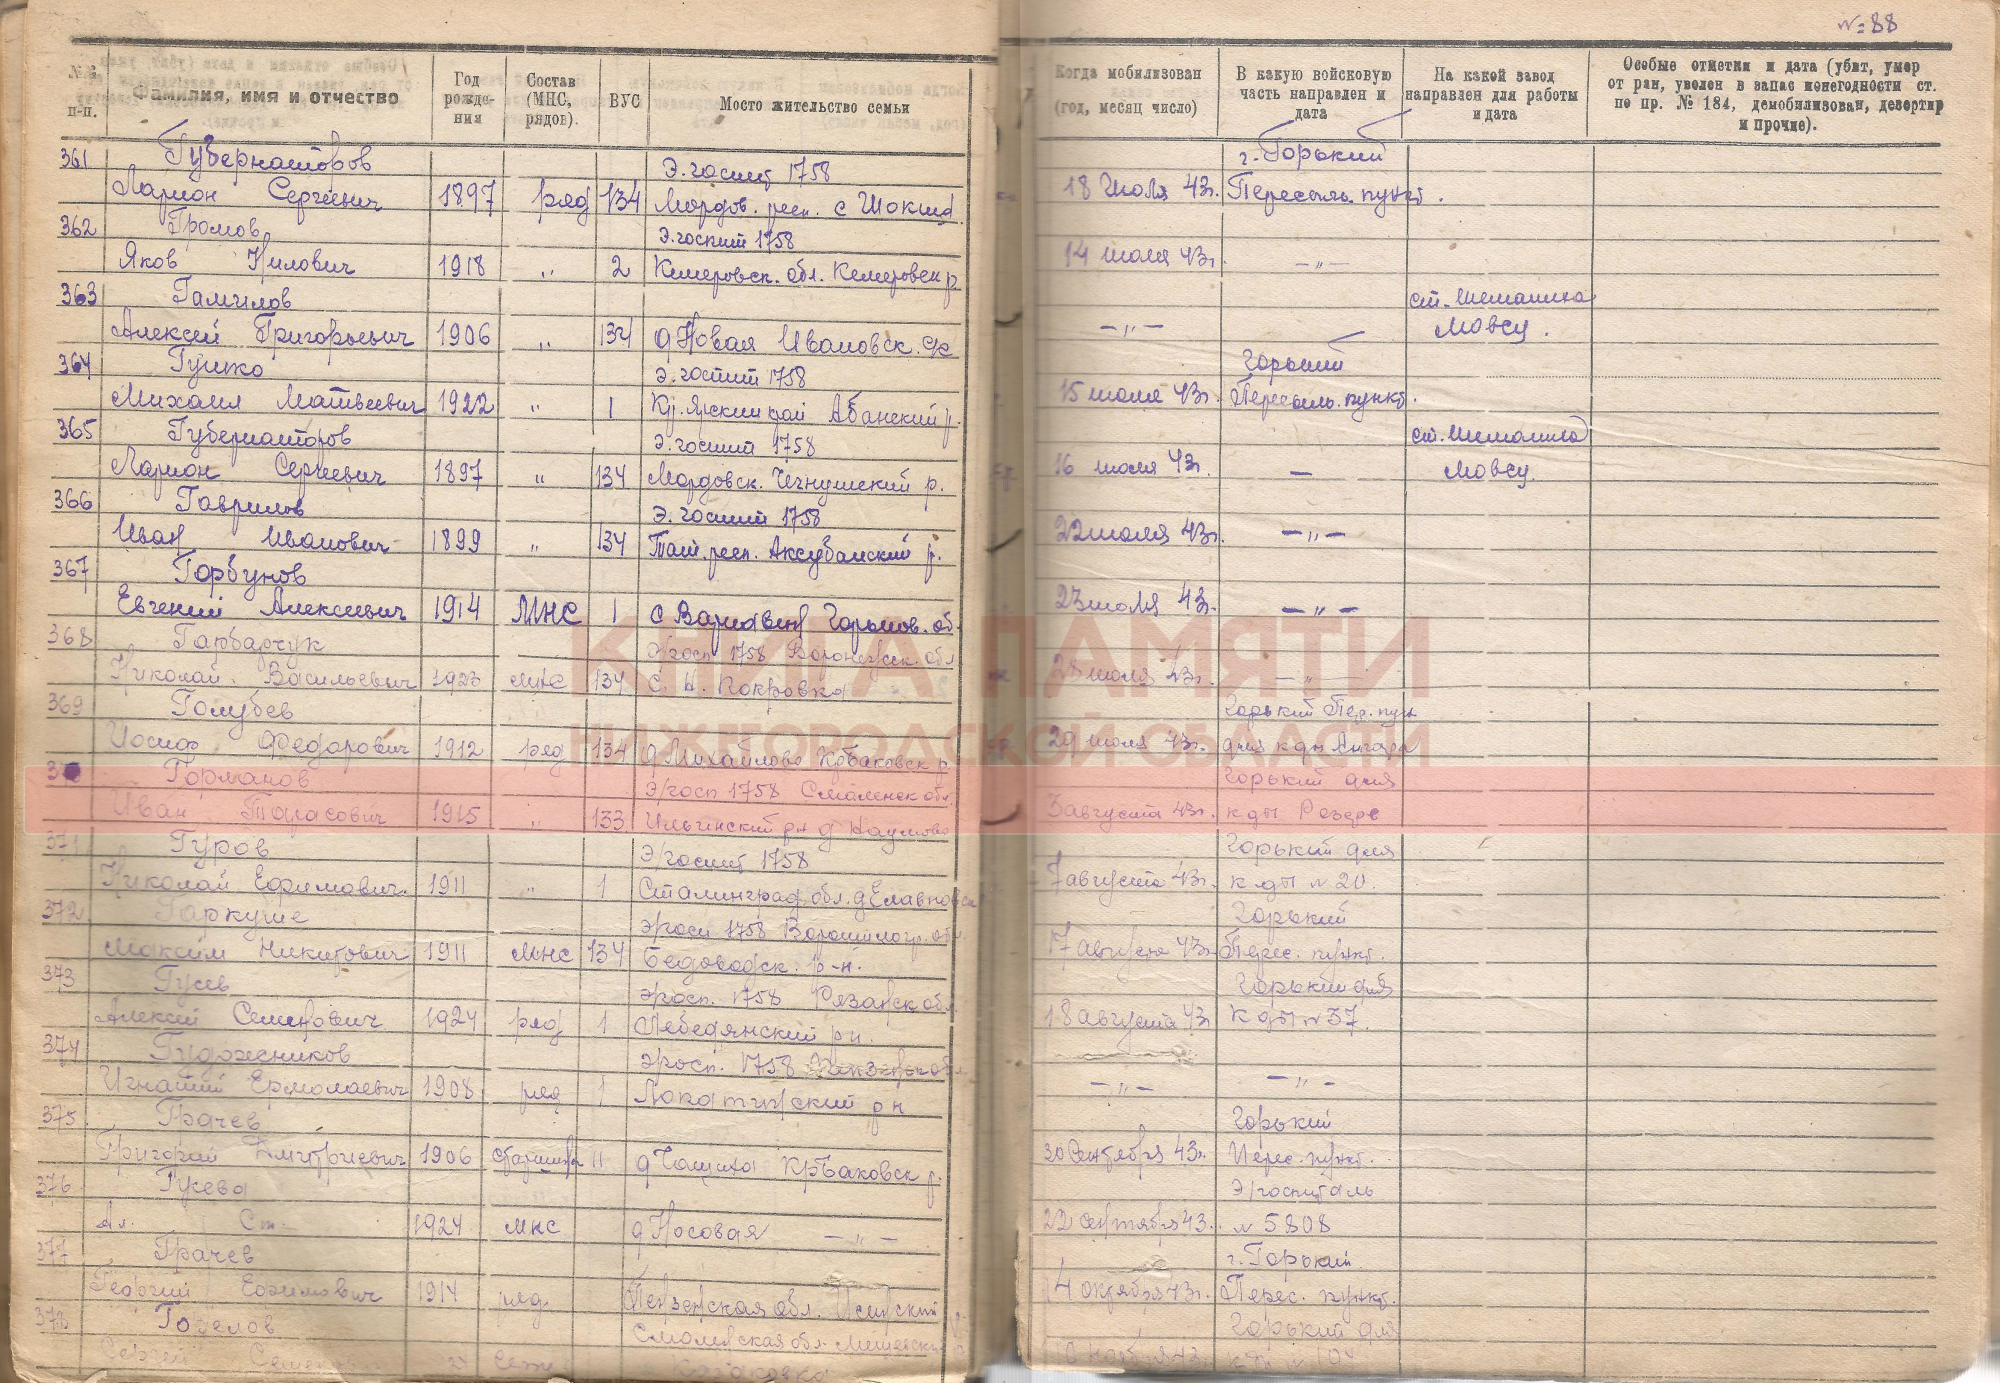 № 88
№№ п-п.
Фамилия, имя и отчество
Год рожде-ния
Состав (МНС, рядов).
ВУС
Место жительство семьи
Когда мобилизован (год, месяц число)
В какую войсковую часть направлен и дата
На какой завод направлен для работы и дата
Особые отметки и дата (убит, умер от ран, уволен в запас понегодности ст. по пр. № 184, демобилизован, дезертир и прочие).
361 Губернаторов Э.госпит 1758 г. Горький
Ларион Сергеевич 1897 ряд 134 Мордов. респ. с Шокша 18 Июля 43г. Пересыль. пункт.
362 Громов Э.госпит 1758
Яков Нилович 1918 " 2 Кемеровск. обл. Кемеровск р. 14 июля 43г. —"—
363 Гамилов ст. Шеманиха
Алексей Григорьевич 1906 " 134 д Новая Ивановск. 
—"— Мовсу.
364 Гушко Э.госпит 1758 Горький
Михаил Матвеевич 1922 " 1 Кр.Ярский край Абанский р. 15 июля 43г. Пересыль. пункт.
365 Губернаторов Э.госпит 1758 ст. Шеманиха
Ларион Сергеевич 1897 " 134 Мордовск. р. 16 июля 43г. — Мовсу.
366 Гаврилов Э. госпит 1758
Иван Иванович 1899 " 134 Тат. респ. Аксубаиский р. 22 июля 43г. —"—
367 Горбунов
Евгений Алексеевич 1914 МНС 1 с Варнавин Горьков. об. 23 июля 43г. —"—
368 Гамбарчук Э/госп 1758 Воронежск. обл
Николай Васильевич 1923 МНС 134 с. Н. Покровка 28 июля 43г. —"—
КНИГА ПАМЯТИ
369 Голубев Горький Пер. пун
Иосиф Федарович 1912 ряд 134 д Михайлово Кр.Баковск р 29 июля 43г. для к-ды Ангара
НИЖЕГОРОДСКОЙ ОБЛАСТИ
Горманов Э/госп 1758 Смоленск обл. Горький для
Иван Тарасович 1915 " 133 Ильинский рн д Наумово 3 августа 43г. к-ды Резерв
371 Гуров Э/госпит 1758 Горький для
Николай Ефимович. 1911 " 1 Сталинград. обл. 7 августа 43г. к-ды № 20.
372 Гаркуше Э/госп 1758 Ворошилогр. обл Горький
Максим Никитович 1911 МНС 134 Бедоводск. р-н. 17 августа 43г. Перес. пункт.
373 Гусев Э/госп. 1758 Рязанск обл. Горький для
Алексей Семенович 1924 ряд 1 Лебедянский рн. 18 августа 43 к-ды № 37.
374 Гудожников Э/госп. 1758 Пензенск обл
Игнатий Ермолаевич 1908 ряд 1 Лопатинский рн —"— —"—
375 Грачев Горький
Григорий Дмитриевич 1906 старшина 11 д Чащиха Кр.Баковск р. 30 Сентября 43г. Перес. пункт.
376 Гусева Э/госпиталь
Ал. Ст. 1924 МНС д Носовая —"— 22 сентября 43. № 5808
377 Грачев г. Горький
Георгий Ефимович 1914 ряд. Пензенская обл. 4 октября 43г. Перес. пункт.
378 Смоленская обл. Горький для
Сергей